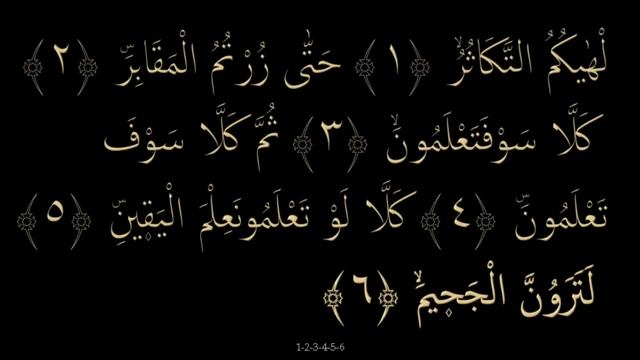 لْهٰيكُمُ التَّكَاثُرُۙ ﴿١﴾ حَتّٰى زُرْتُمُ الْمَقَابِرَۜ ﴿٢﴾
كَلَّا سَوْفَتَعْلَمُونَۙ ﴿٣﴾ ثُمَّ كَلَّا سَوْفَ
تَعْلَمُونَۜ ﴿٤﴾ كَلَّا لَوْ تَعْلَمُونَعِلْمَ الْيَقِينِۜ ﴿٥﴾
لَتَرَوُنَّ الْجَحِيمَۙ ﴿٦﴾
1-2-3-4-5-6